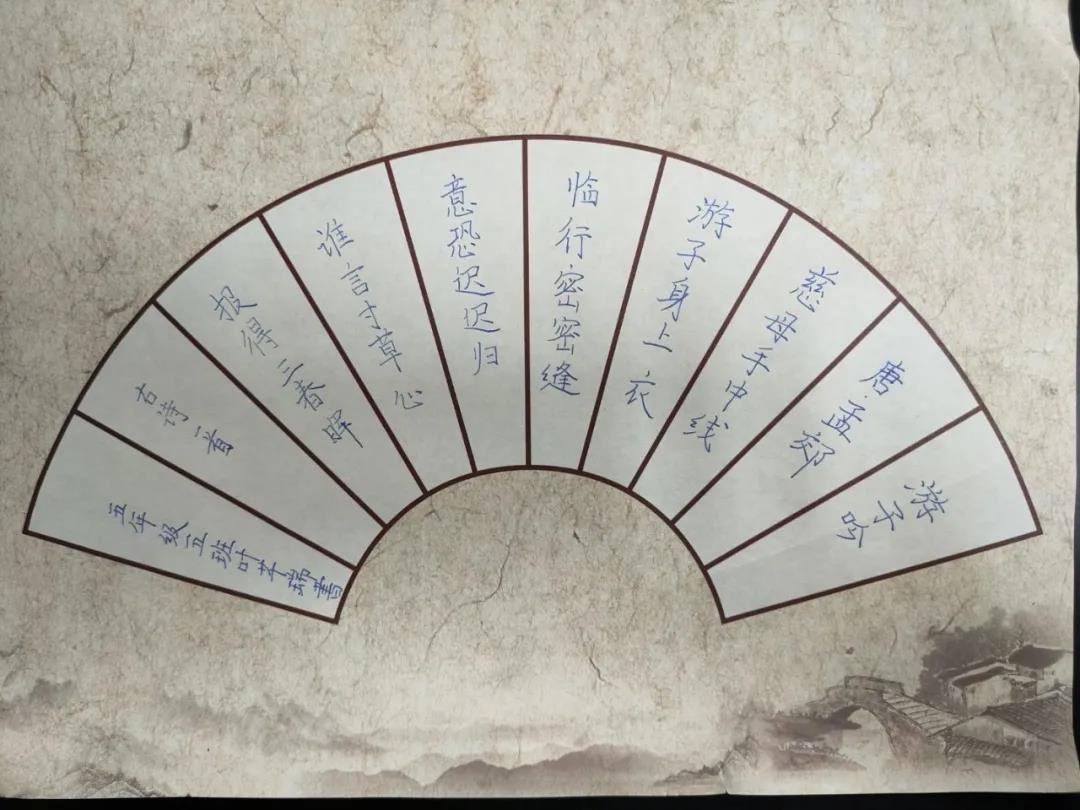 游子吟
唐·孟郊
慈母手中线
游子身上衣
临行密密缝
意恐迟迟归
谁言寸草心
报得三春晖
古诗一首
五年级五班叶芊瑞书